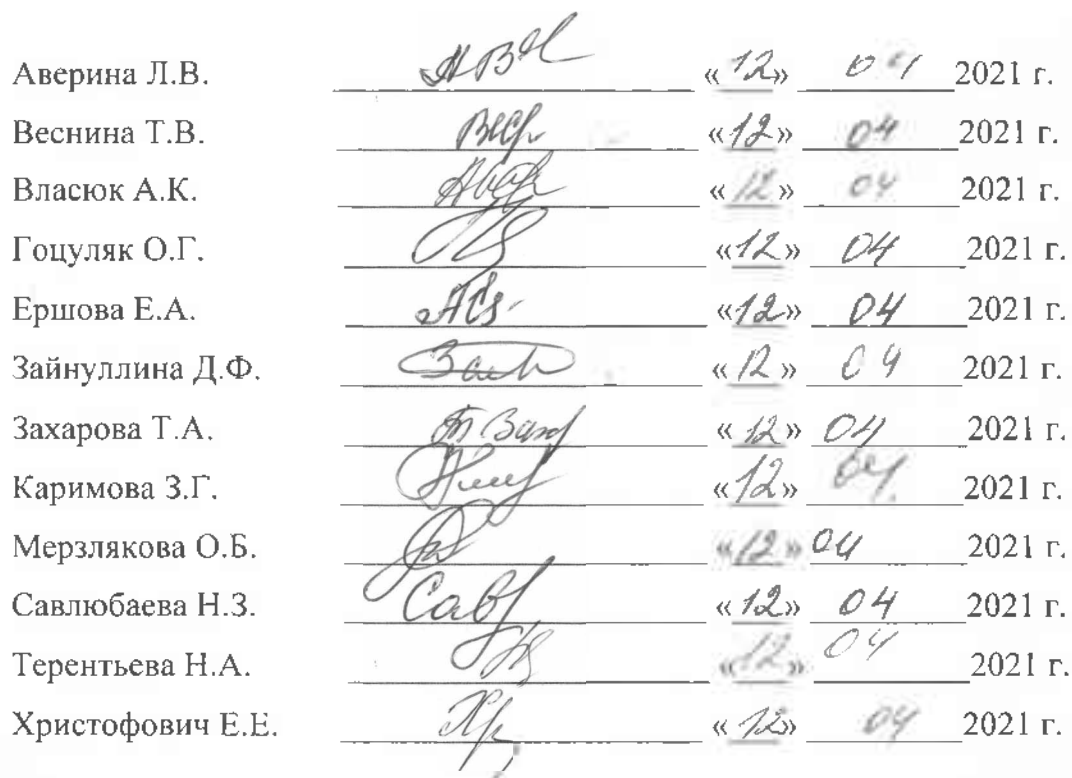 Аверина Л.В. «12» 04 2021 г.
Веснина Т.В. «12» 04 2021 г.
Власюк А.К. «12» 04 2021 г.
Гоцуляк О.Г. «12» 04 2021 г.
Ершова Е.А. «12» 04 2021 г.
Зайнуллина Д.Ф. «12» 04 2021 г.
Захарова Т.А. «12» 04 2021 г.
Каримова З.Г. «12» 04 2021 г.
Мерзлякова О.Б. «12» 04 2021 г.
Савлюбаева Н.З. «12» 04 2021 г.
Терентьева Н.А. «12» 04 2021 г.
Христофович Е.Е. «12» 04 2021 г.